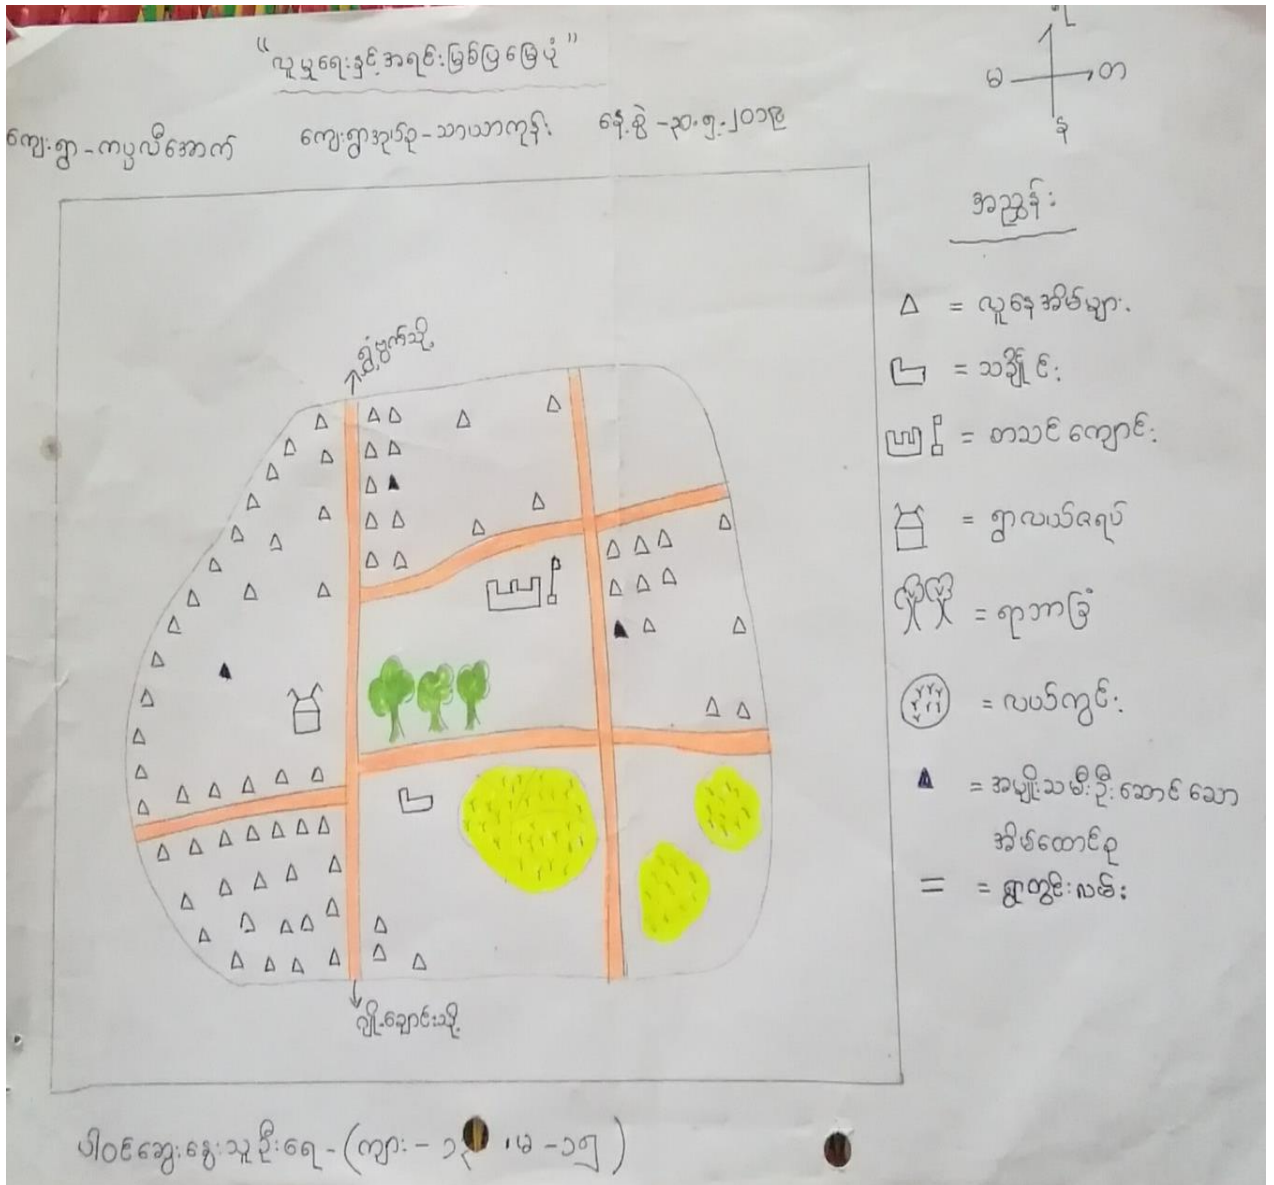 "လူမှုရေးနှင့်အရင်းမြစ်ပြမြေပုံ"
ကျေးရွာ-ကပ္ပလီအောက် ကျေးရွာအုပ်စု-သာယာကုန်း နေ့စွဲ-၃၀.၅.၂၀၁၉
မ တ
အညွှန်း
= လူနေအိမ်များ.
= သချိုင်း
= စာသင်ကျောင်း
= ရွာလယ်ဇရပ်
= ရာဘာခြံ
= လယ်ကွင်း
= အမျိုးသမီးဦးဆောင်သော
အိမ်ထောင်စု
= ရွာတွင်းလမ်း
ပါဝင်ဆွေးနွေးသူဦးရေ-(ကျား- မ -၁၅)